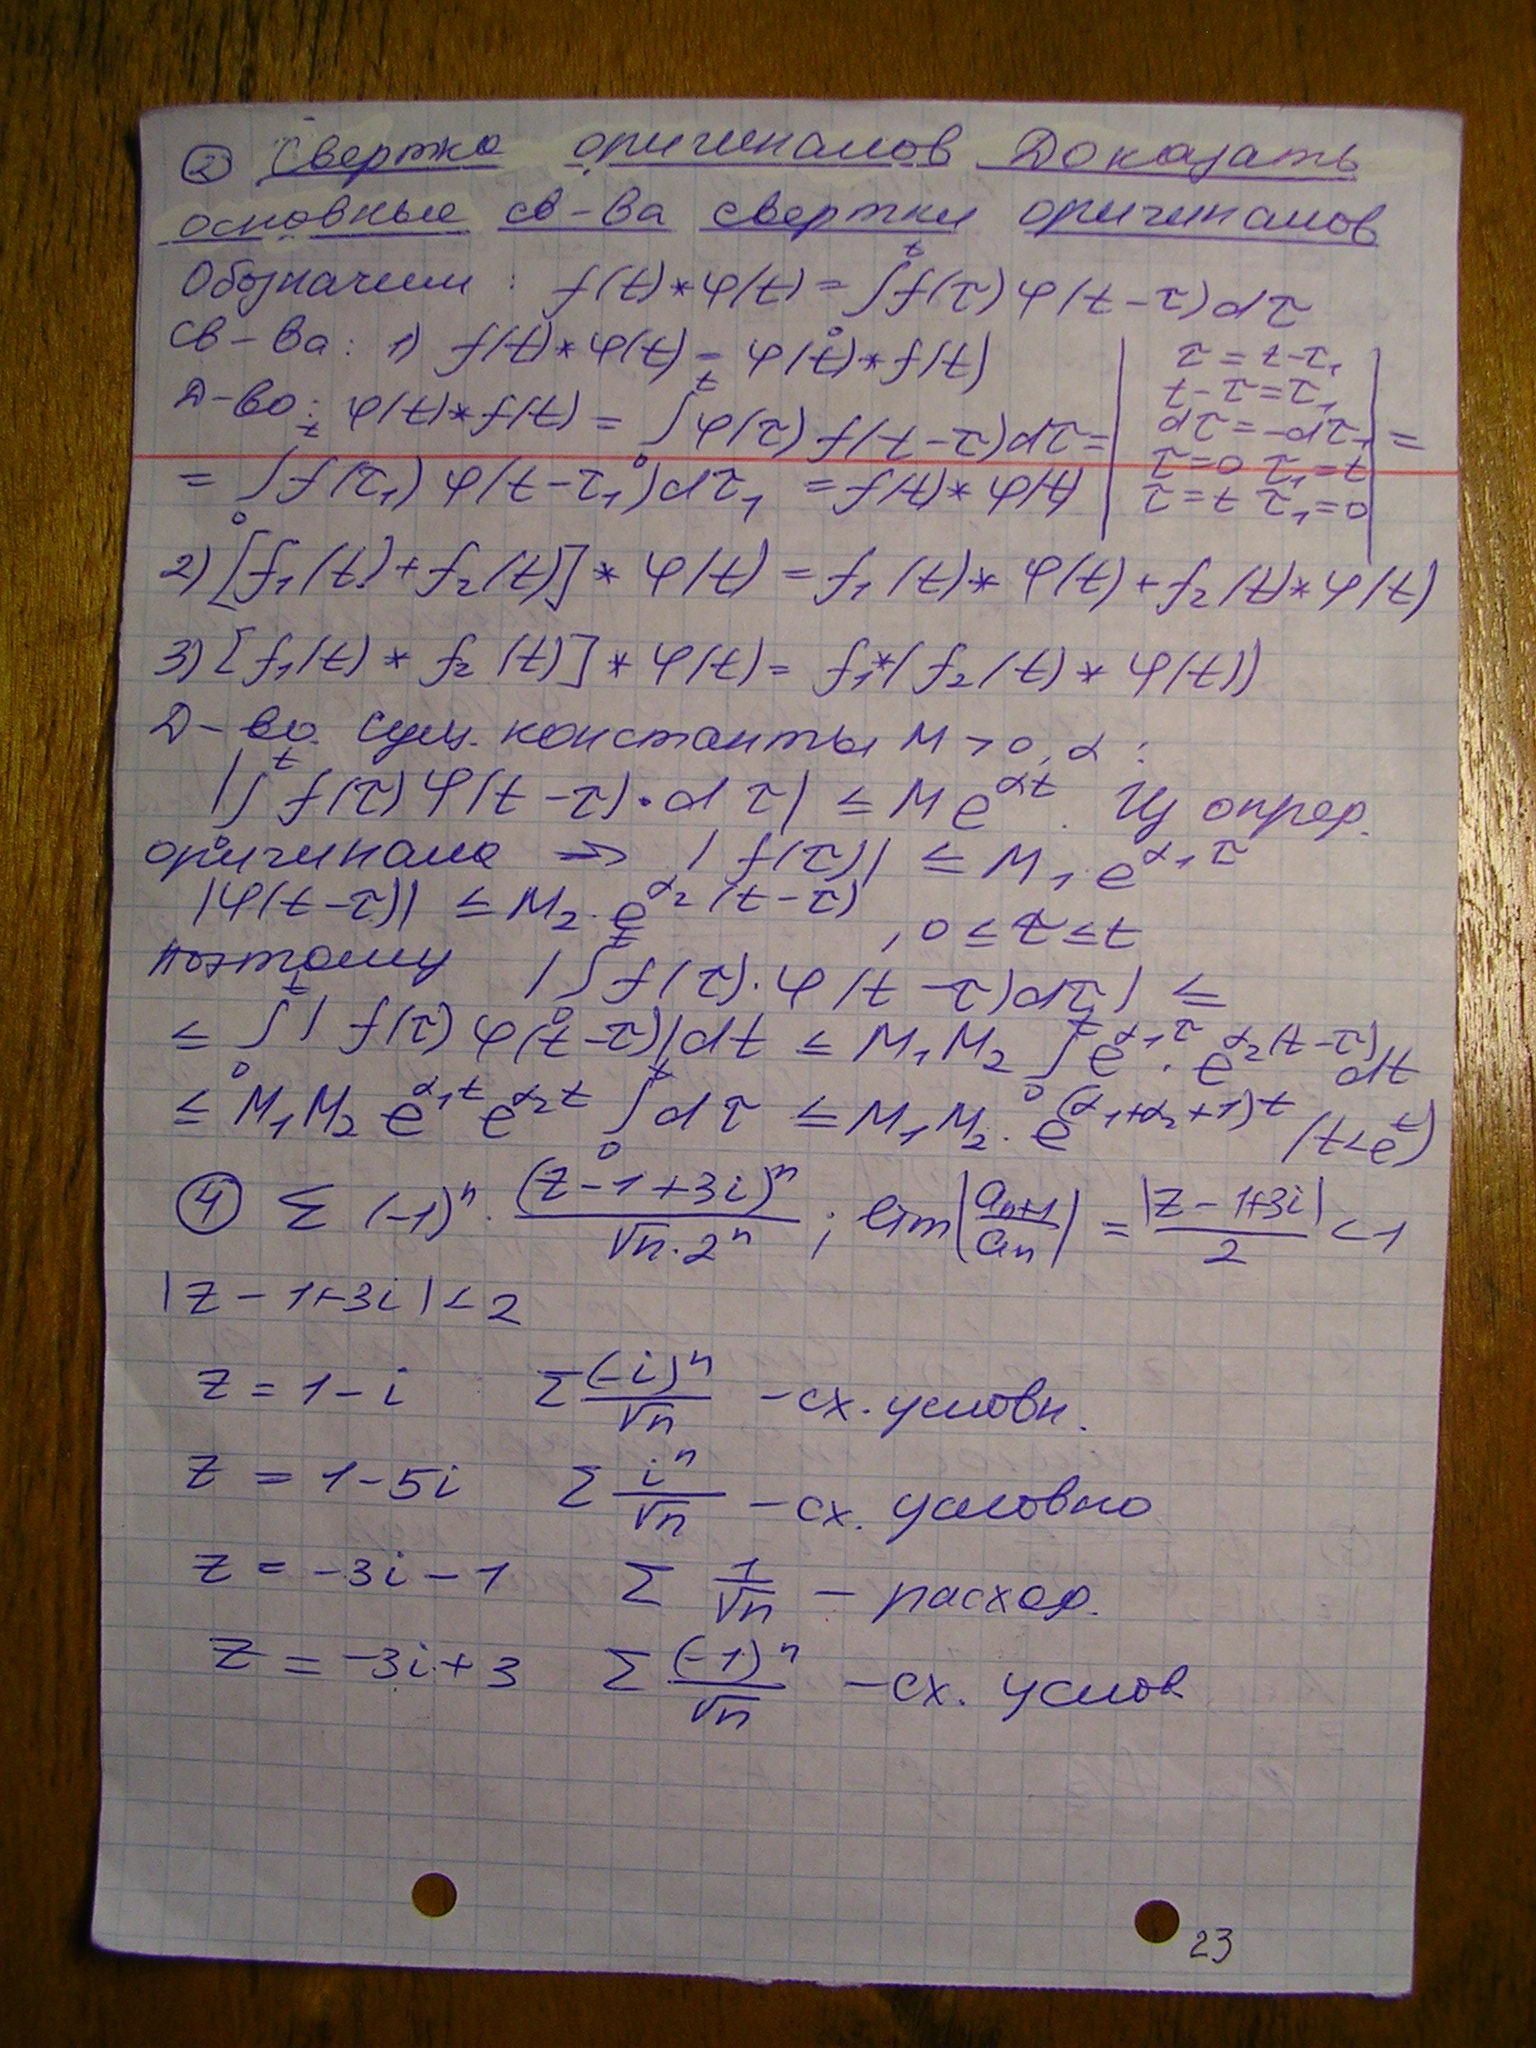 ② Свертка оригиналов Доказать
основные св-ва свертки оригиналов
Обозначим: f(t)*φ(t) = ∫₀ᵗ f(τ)φ(t-τ)dτ
Св-ва: 1) f(t)*φ(t) = φ(t)*f(t)
Д-во: φ(t)*f(t) = ∫₀ᵗ φ(τ)f(t-τ)dτ = | τ = t-τ₁
t-τ = τ₁
dτ = -dτ₁
τ=0 τ₁=t
τ=t τ₁=0 | =
= ∫₀ᵗ f(τ₁)φ(t-τ₁)dτ₁ = f(t)*φ(t)
2) [f₁(t)+f₂(t)]*φ(t) = f₁(t)*φ(t)+f₂(t)*φ(t)
3) [f₁(t)*f₂(t)]*φ(t) = f₁*(f₂(t)*φ(t))
Д-во. Сущ. константы M>0, α:
|∫₀ᵗ f(τ)φ(t-τ)·dτ| ≤ Me^{αt}. Из опред.
оригинала => |f(τ)| ≤ M₁·e^{α₁τ}
|φ(t-τ)| ≤ M₂·e^{α₂(t-τ)}, 0≤τ≤t
поэтому |∫₀ᵗ f(τ)·φ(t-τ)dτ| ≤
≤ ∫₀ᵗ |f(τ)φ(t-τ)|dt ≤ M₁M₂ ∫₀ᵗ e^{α₁τ}·e^{α₂(t-τ)}dt
≤ M₁M₂e^{α₁t}e^{α₂t} ∫₀ᵗ dτ ≤ M₁M₂·e^{(α₁+α₂+1)t} (t<eᵗ)
④ Σ (-1)ⁿ·(z-1+3i)ⁿ/(√n·2ⁿ); lim|aₙ₊₁/aₙ| = |z-1+3i|/2 <1
|z-1+3i|<2
z = 1-i Σ(-i)ⁿ/√n -сх. условн.
z = 1-5i Σ iⁿ/√n -сх. условно
z = -3i-1 Σ 1/√n - расход.
z = -3i+3 Σ (-1)ⁿ/√n -сх. услов
23